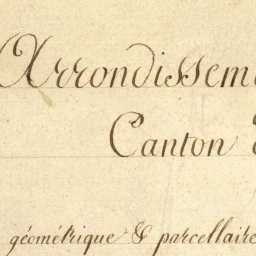 Arrondissem
Canton
géométrique & parcellaire